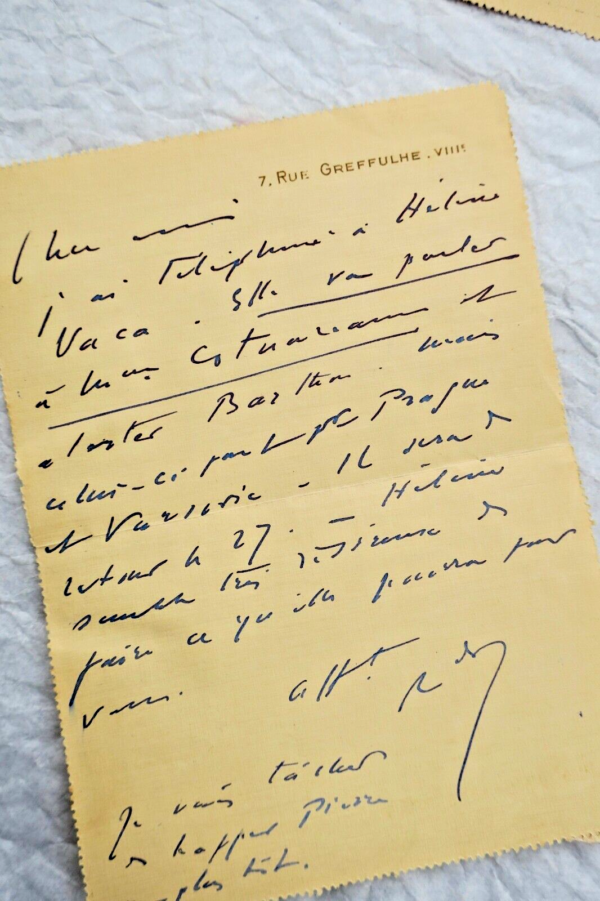 7, RUE GREFFULHE . VIIIE
Cher ami
j'ai téléphoné à Hélène
Vaca . Elle va parler
à et
alerter Barthou . mais
celui-ci part pr Prague
et Varsovie - Il sera de
retour le 27 . - Hélène
semble très désireuse de
faire ce qu'elle pourra pour
vous .
afft
Je vais tâcher
de happer Pierre
plus tôt .